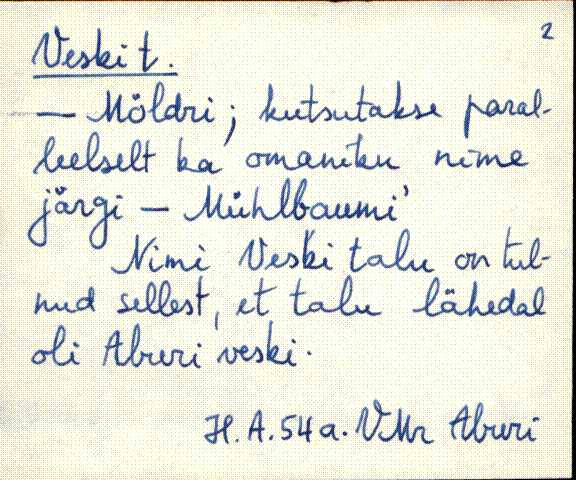 2
Veski t.
— Möldri; kutsutakse paral-
leelselt ka omaniku nime
järgi — Mühlbaumi'
Nimi Veski talu on tul-
nud sellest, et talu lähedal
oli Aburi veski.
H. A. 54 a. VMr Aburi